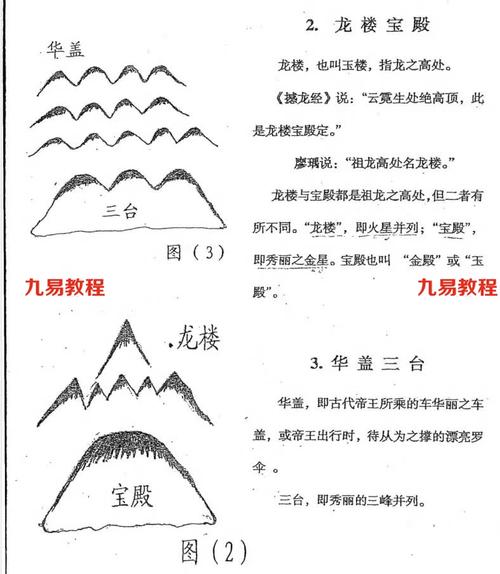 华盖
三台
图(3)
九易教程
龙楼
宝殿
图(2)
2. 龙楼宝殿
龙楼，也叫玉楼，指龙之高处。
《撼龙经》说：“云霓生处绝高顶，此
是龙楼宝殿定。”
廖瑀说：“祖龙高处名龙楼。”
龙楼与宝殿都是祖龙之高处，但二者有
所不同。“龙楼”，即火星并列；“宝殿”，
即秀丽之金星。宝殿也叫 “金殿”或“玉
殿”。
九易教程
3. 华盖三台
华盖，即古代帝王所乘的车华丽之车
盖，或帝王出行时，待从为之撑的漂亮罗
伞 。
三台，即秀丽的三峰并列。